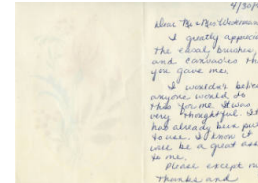 4/30/
Dear Mr & Mrs
I greatly apprecia
the easel, brushes,
and canvases th
you gave me.
I wouldn't believe
anyone would do
this for me. It was
very thoughtful. It
has already been put
to use. I know it
will be a great ass
to me.
Please except m
thanks and